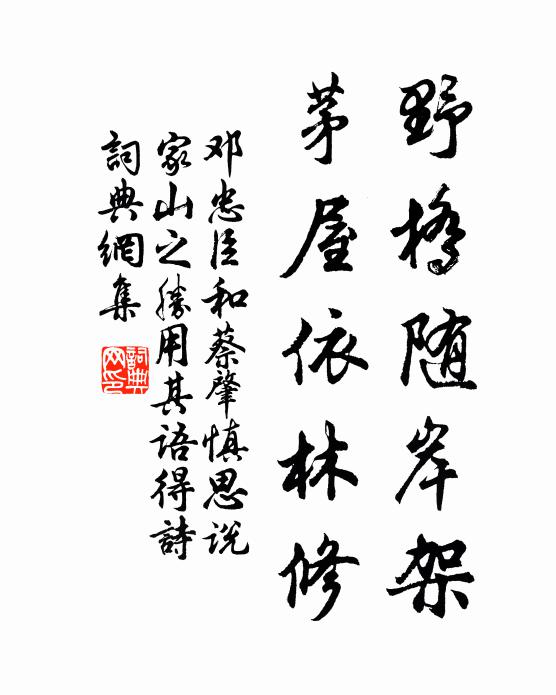 野橋随岸架
茅屋依林修
邓忠臣和蔡肇慎思说
家山之勝用其语得詩
詞典網集
詞典网印